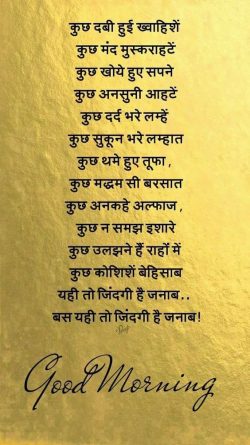 कुछ दबी हुई ख्वाहिशें
कुछ मंद मुस्कराहटें
कुछ खोये हुए सपने
कुछ अनसुनी आहटें
कुछ दर्द भरे लम्हें
कुछ सुकून भरे लम्हात
कुछ थमे हुए तूफा,
कुछ मद्धम सी बरसात
कुछ अनकहे अल्फाज,
कुछ न समझ इशारे
कुछ उलझने हैं राहों में
कुछ कोशिशें बेहिसाब
यही तो जिंदगी है जनाब..
बस यही तो जिंदगी है जनाब!
Good Morning